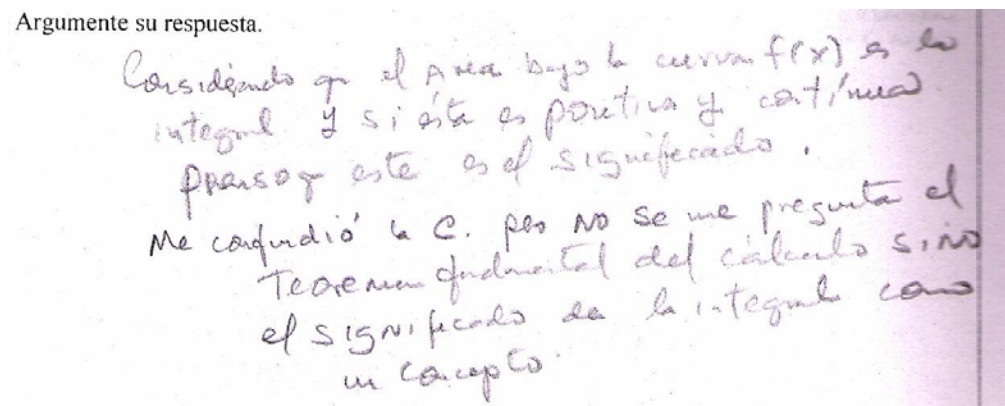 Argumente su respuesta.
Considerando q el Area bajo la curva f(x) es la
integral y si ésta es positiva y contínua
pienso q este es el significado.
Me confundió la C. pero NO se me pregunta el
Teorema fundamental del cálculo sino
el significado de la integral como
un concepto.